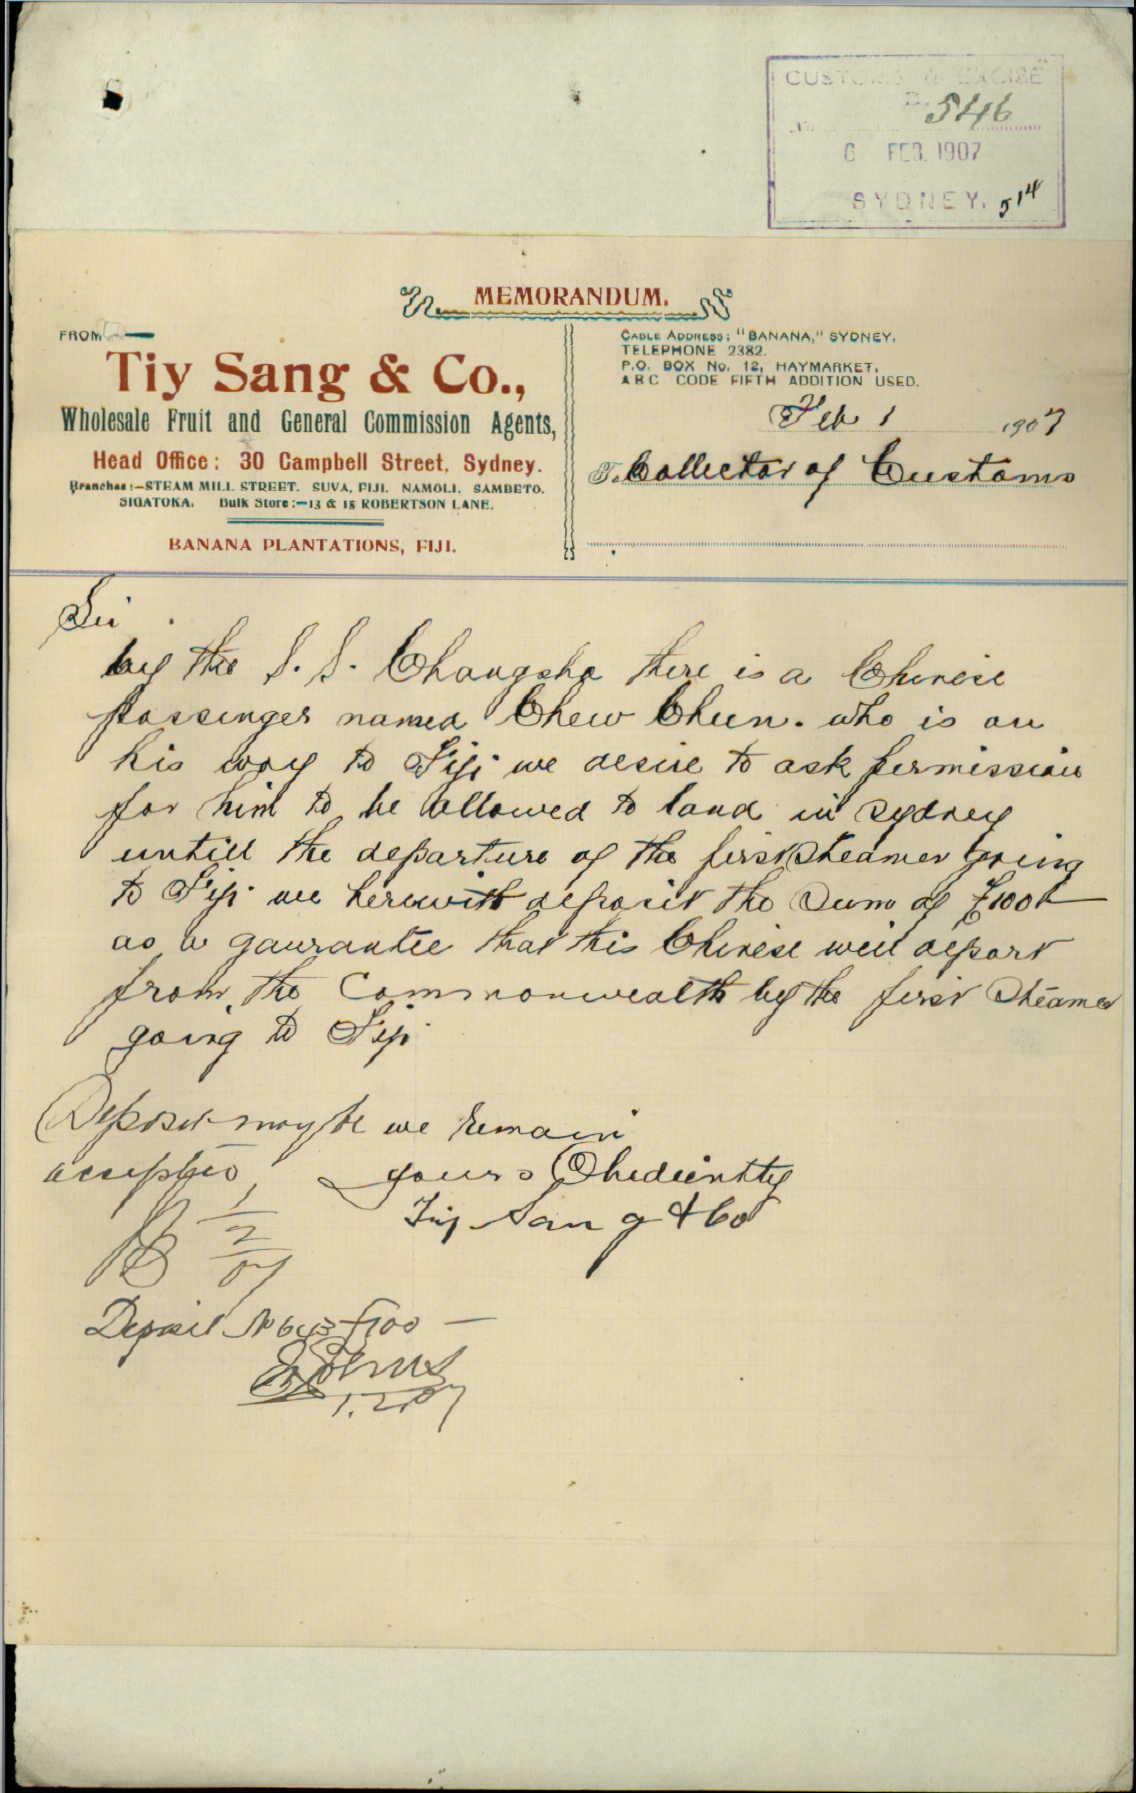 CUSTOMS & EXCISE
546
6 FEB. 1907
SYDNEY. 514
MEMORANDUM.
FROM
Tiy Sang & Co.,
Wholesale Fruit and General Commission Agents,
Head Office: 30 Campbell Street, Sydney.
Branches:—STEAM MILL STREET. SUVA, FIJI. NAMOLI. SAMBETO.
SIGATOKA. Bulk Store:—13 & 15 ROBERTSON LANE.
BANANA PLANTATIONS, FIJI.
CABLE ADDRESS: "BANANA," SYDNEY.
TELEPHONE 2382.
P.O. BOX No. 12, HAYMARKET.
A B C CODE FIFTH ADDITION USED.
Feb 1 1907
To Collector of Customs
Sir
by the S. S. Changsha there is a Chinese
passenger named Chew Chun. who is on
his way to Fiji we desire to ask permission
for him to be allowed to land in Sydney
untill the departure of the first steamer going
to Fiji we herewith deposit the Sum of £100
as a gaurantee that this Chinese will depart
from the Commonwealth by the first Steamer
going to Fiji
we remain
yours Obediently
Tiy Sang & Co
Deposit may be
accepted
1/2/07
Deposit No 643 £100 —
1.2.07